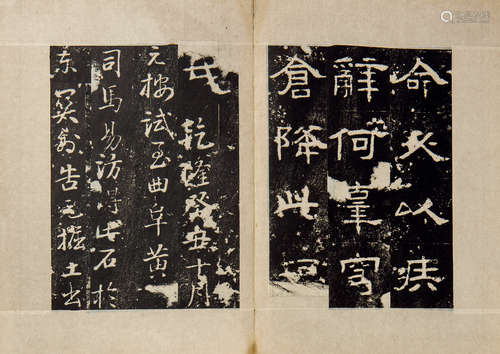 命夭以疾
辭何辜穹
倉降此
氏 乾隆癸丑十月
元按試至曲阜黄
司馬易訪得此石於
東關外告元輦土出